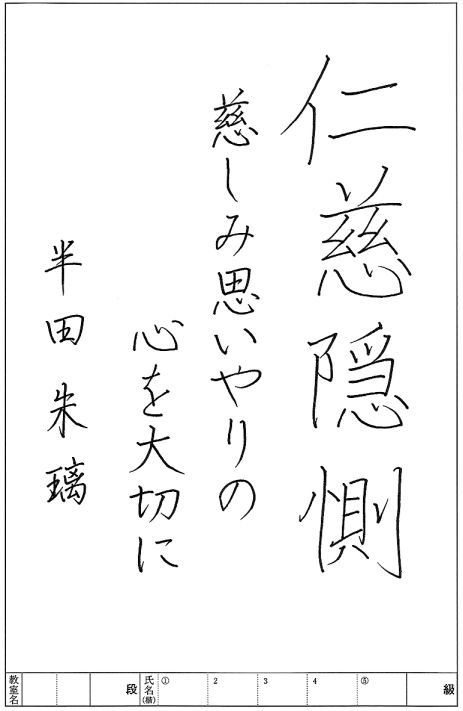 仁慈隠惻
慈しみ思いやりの
心を大切に
半田朱璃
教室名
段
氏名(楷)
①
2
3
4
⑤
級